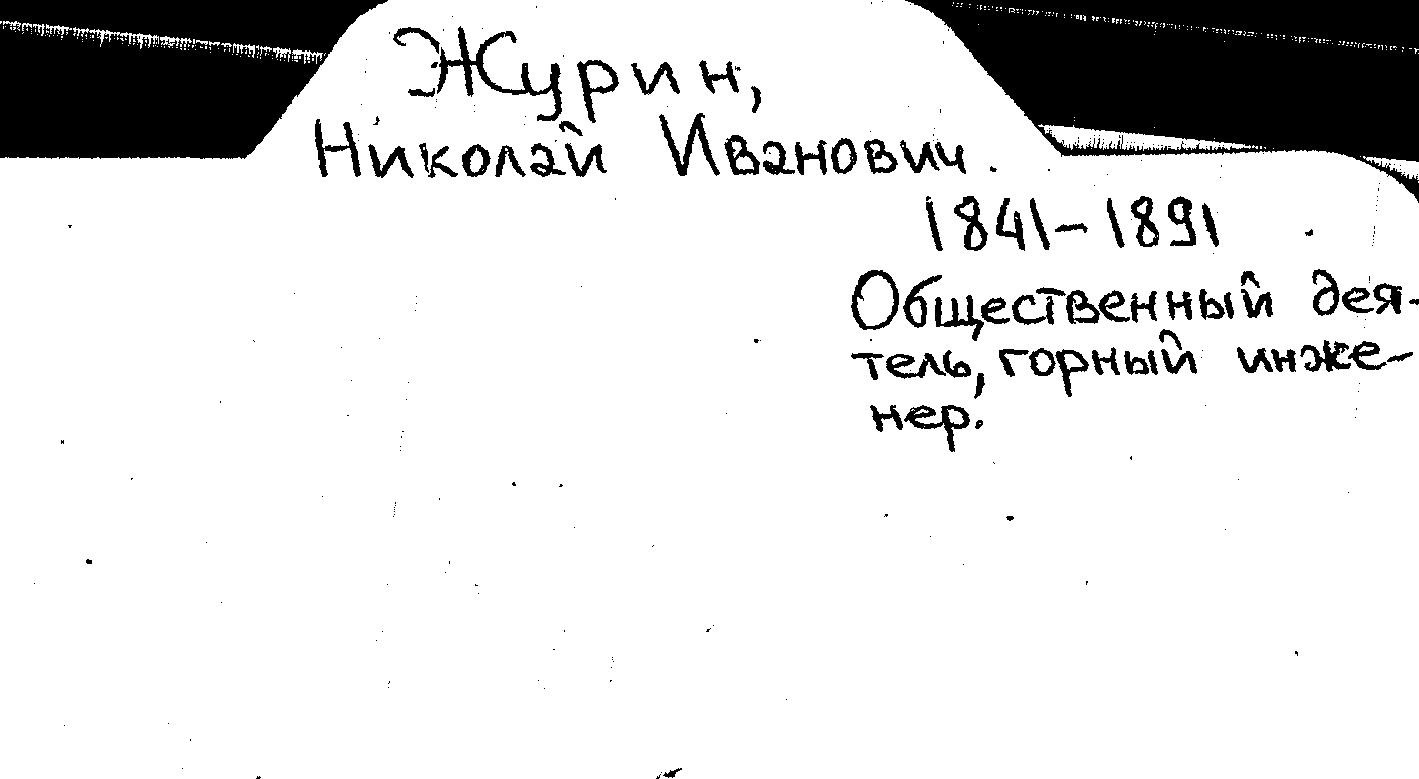 Журин,
Николай Иванович.
1841-1891
Общественный дея-
тель, горный инже-
нер.